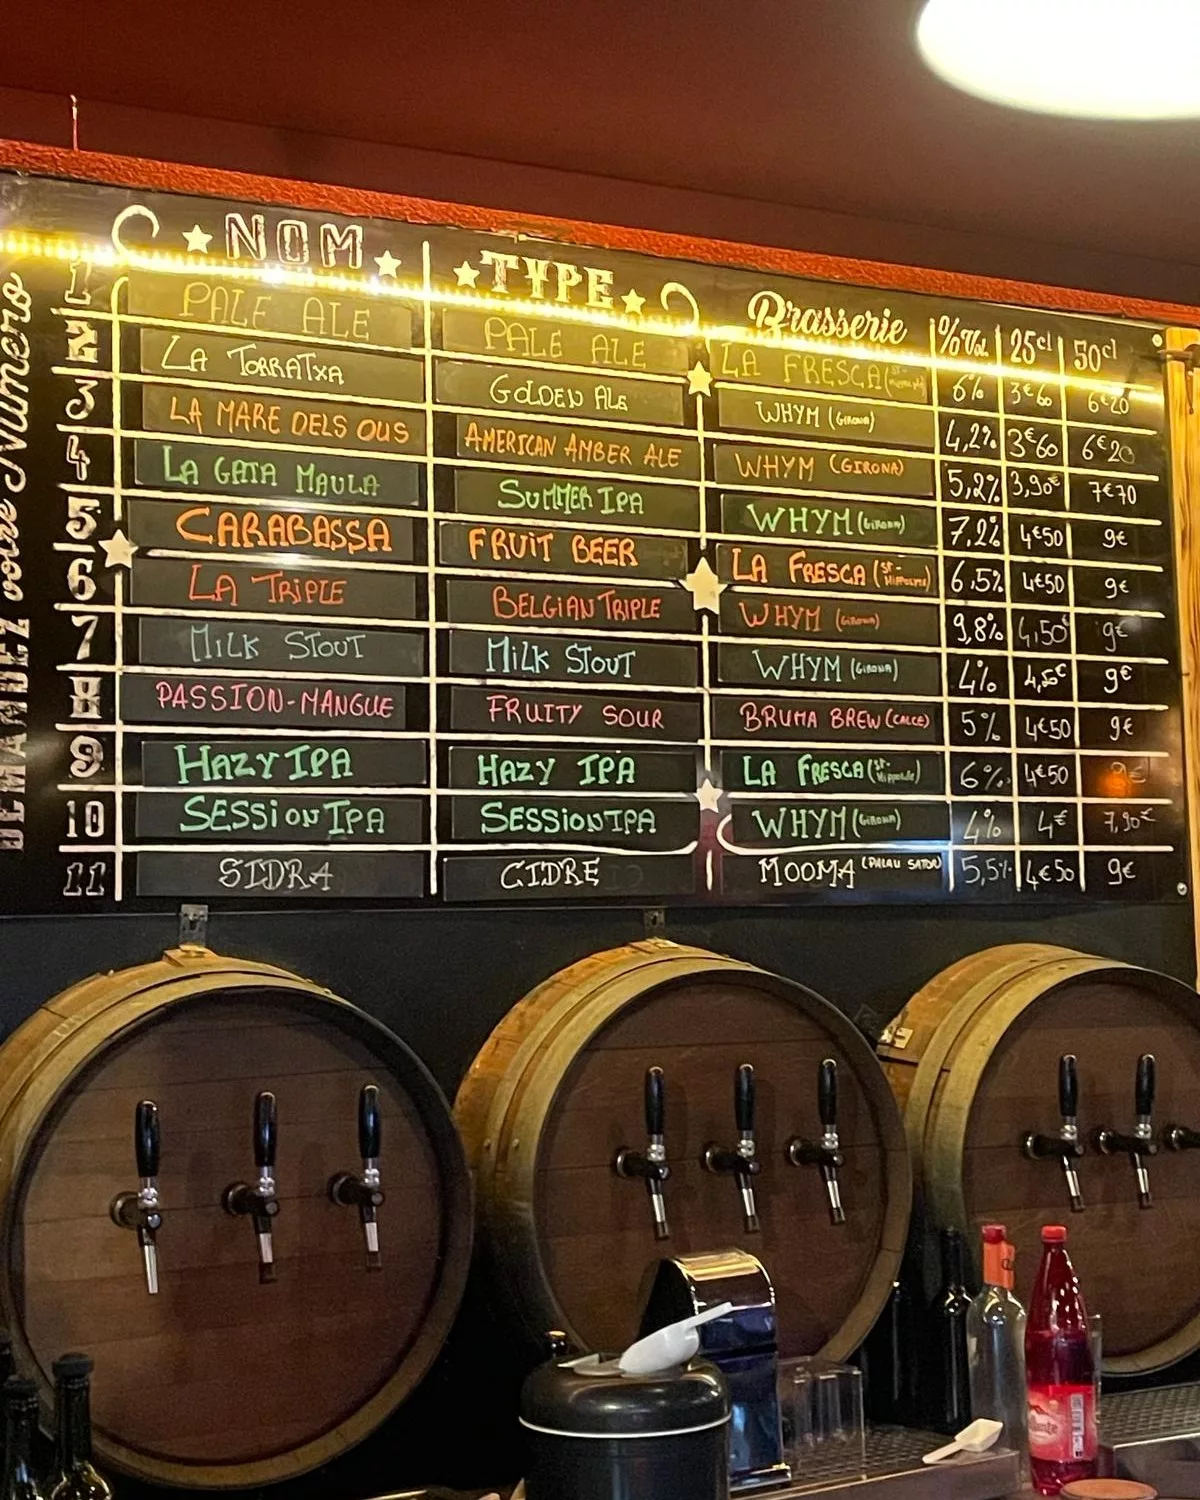 NOM TYPE Brasserie %Vol. 25cl 50cl
DEMANDEZ votre Numéro
1 PALE ALE PALE ALE LA FRESCA (ST-Hippolyte) 6% 3€60 6€20
2 LA TORRATXA GOLDEN ALE WHYM (GIRONA) 4,2% 3€60 6€20
3 LA MARE DELS OUS AMERICAN AMBER ALE WHYM (GIRONA) 5,2% 3,90€ 7€70
4 LA GATA MAULA SUMMER IPA WHYM (GIRONA) 7,2% 4€50 9€
5 CARABASSA FRUIT BEER LA FRESCA (ST-HIPPOLYTE) 6.5% 4€50 9€
6 LA TRIPLE BELGIAN TRIPLE WHYM (GIRONA) 9,8% 4,50€ 9€
7 MILK STOUT MILK STOUT WHYM (GIRONA) 4% 4,50€ 9€
8 PASSION-MANGUE FRUITY SOUR BRUMA BREW (CALCE) 5% 4€50 9€
9 HAZY IPA HAZY IPA LA FRESCA (ST-Hippolyte) 6% 4€50 9€
10 SESSION IPA SESSION IPA WHYM (GIRONA) 4% 4€ 7,90€
11 SIDRA CIDRE MOOMA (PALAU SATOR) 5,5% 4€50 9€